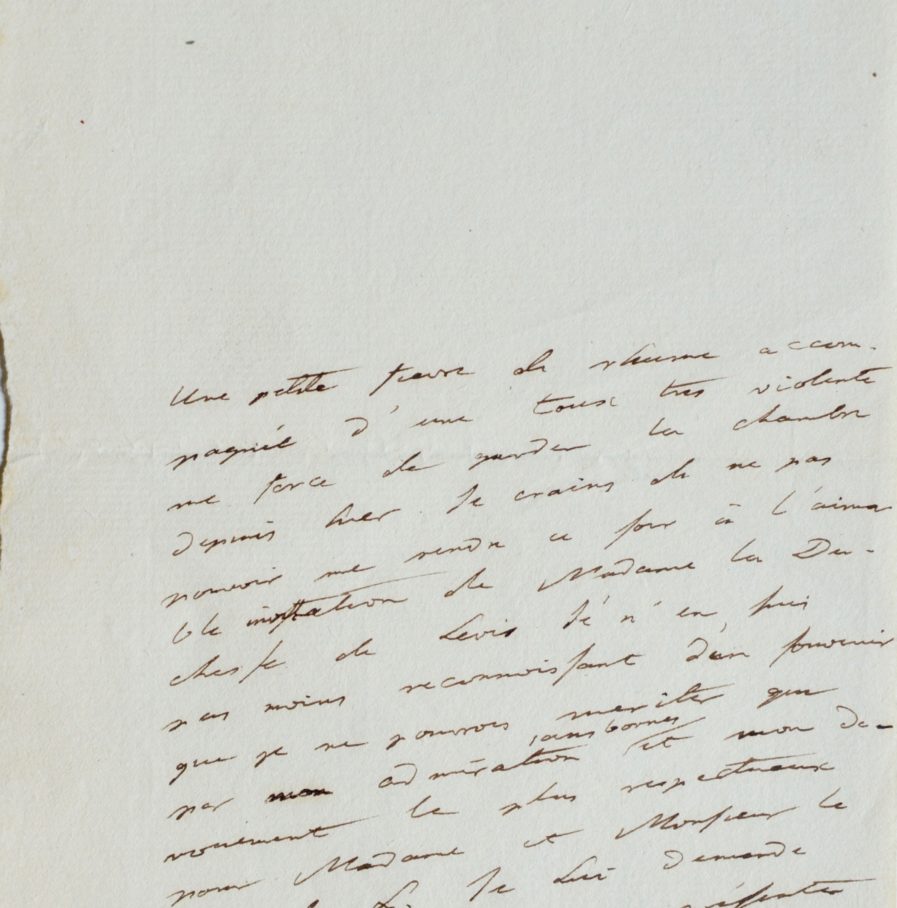 Une petite fievre de rhume accom-
pagnée d'une toux tres violente
me force de garder la chambre
depuis hier Je crains de ne pas
pouvoir me rendre ce soir à l'aima
ble invitation de Madame la Du-
chesse de Levis Je n'en suis
pas moins reconnoissant d'un souvenir
que je ne pourrois meriter que
sans bornes
par mon admiration et mon dé-
vouement le plus respectueux
pour Madame et Monsieur le
Je Lui demande